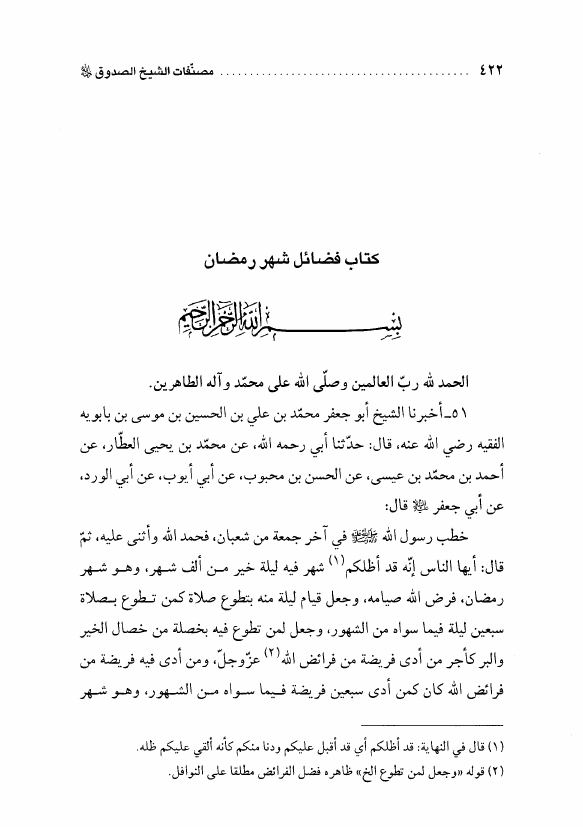 ٤٢٢ ........................................ مصنّفات الشيخ الصدوق ﷫
كتاب فضائل شهر رمضان
بسم الله الرحمن الرحيم
الحمد لله ربّ العالمين وصلّى الله على محمّد وآله الطاهرين.
٥١ـ أخبرنا الشيخ أبو جعفر محمّد بن علي بن الحسين بن موسى بن بابويه
الفقيه رضي الله عنه، قال: حدّثنا أبي رحمه الله، عن محمّد بن يحيى العطّار، عن
أحمد بن محمّد بن عيسى، عن الحسن بن محبوب، عن أبي أيوب، عن أبي الورد،
عن أبي جعفر ﷷ قال:
خطب رسول الله ﷺ في آخر جمعة من شعبان، فحمد الله وأثنى عليه، ثمّ
قال: أيها الناس إنّه قد أظلكم(١) شهر فيه ليلة خير مـن ألف شـهر، وهـو شـهر
رمضان، فرض الله صيامه، وجعل قيام ليلة منه بتطوع صلاة كمن تـطوع بـصلاة
سبعين ليلة فيما سواه من الشهور، وجعل لمن تطوع فيه بخصلة من خصال الخير
والبر كأجر من أدى فريضة من فرائض الله(٢) عزّوجلّ، ومن أدى فيه فريضة من
فرائض الله كان كمن أدى سبعين فريضة فـيما سـواه مـن الشـهور، وهـو شـهر
(١) قال في النهاية: قد أظلكم أي قد أقبل عليكم ودنا منكم كأنه ألقي عليكم ظله.
(٢) قوله «وجعل لمن تطوع الخ» ظاهره فضل الفرائض مطلقا على النوافل.